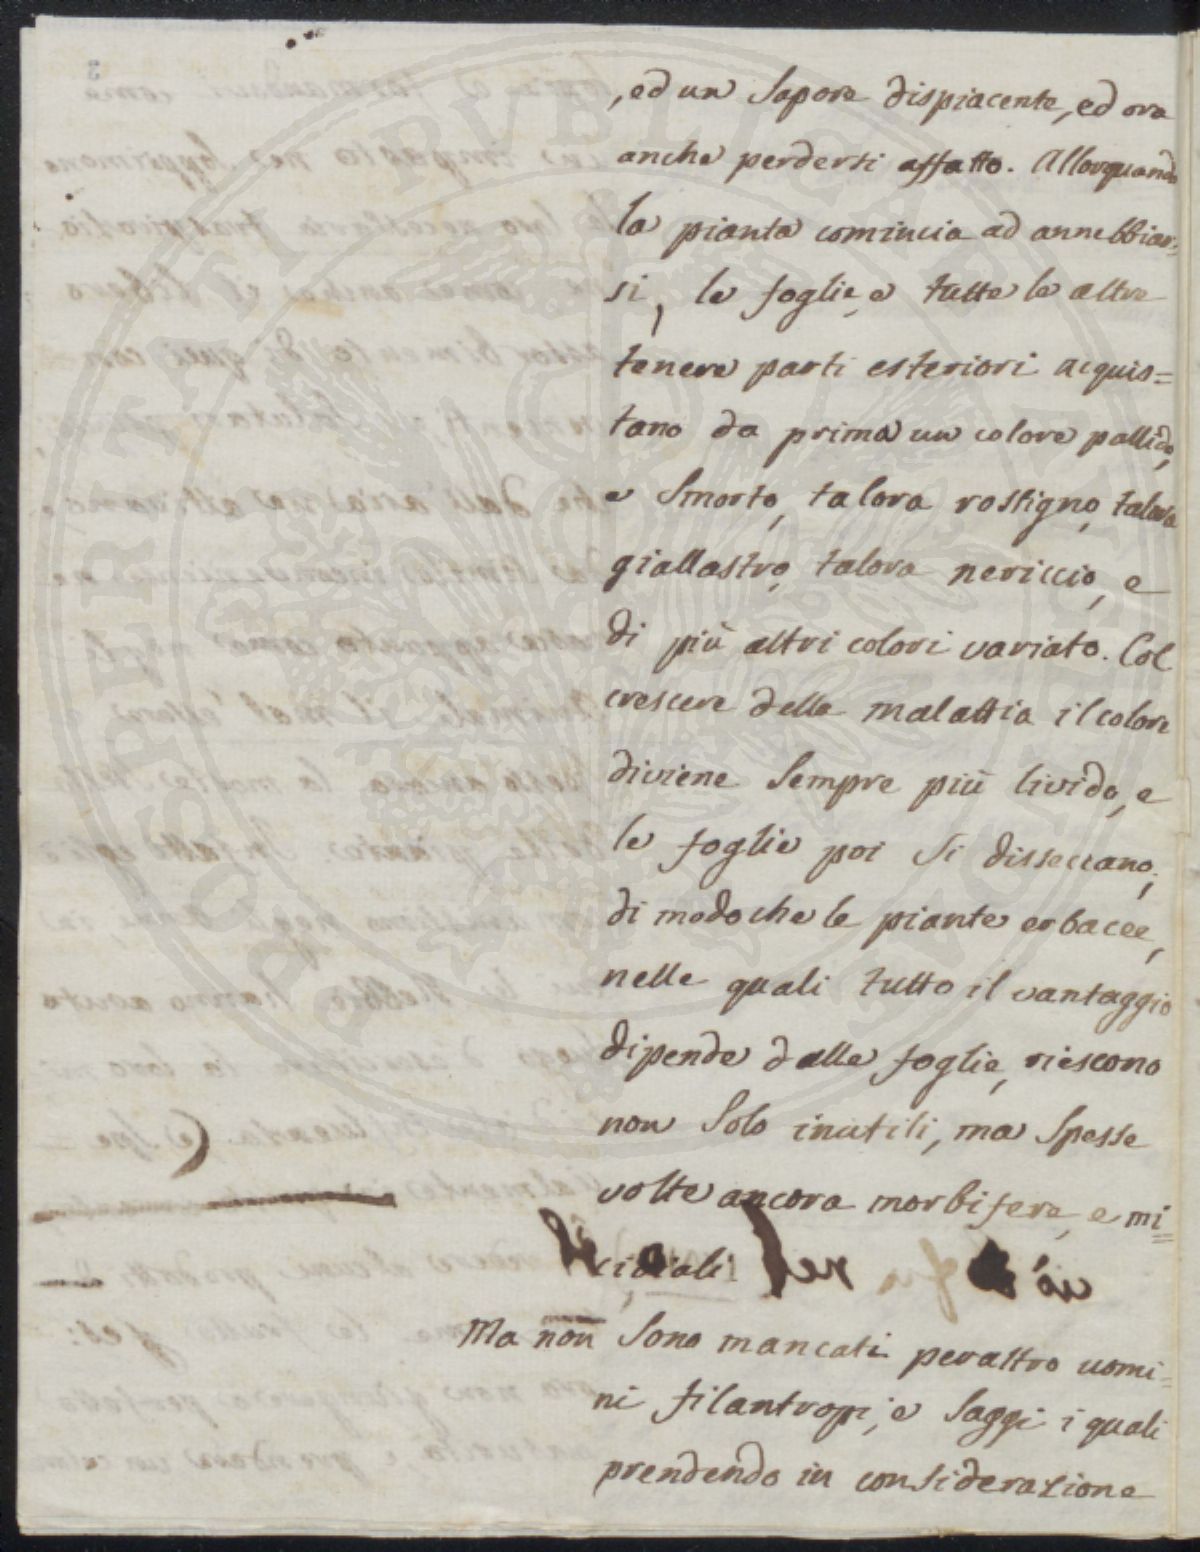 , ed un Sapore dispiacente, ed ora
anche perdersi affatto. Allorquando
la pianta comincia ad annebbiar-
si, le foglie, e tutte le altre
tenere parti esteriori acquis=
tano da prima un colore pallido,
e Smorto, talora rossigno, talora
giallastro, talora nericcio, e
di più altri colori variato. Col
crescere della malattia il colore
diviene Sempre più livido, e
le foglie poi Si disseccano;
di modo che le piante erbacee,
nelle quali tutto il vantaggio
dipende dalle foglie, riescono
non Solo inutili, ma Spesse
volte ancora morbifere, e mi=
cidiali
Ma non Sono mancati peraltro uomi=
ni filantropi, e Saggi i quali
prendendo in considerazione